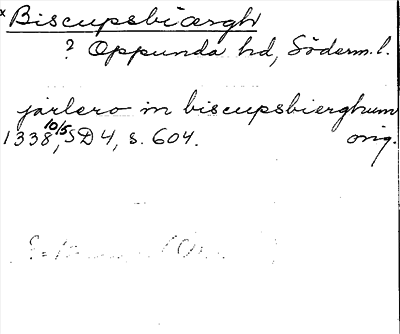 x Biscupsbiærgh
? Oppunda hd, Söderm.l.
jarlero in biscupsbierghum
1338 10/5, SD 4, s. 604. orig.